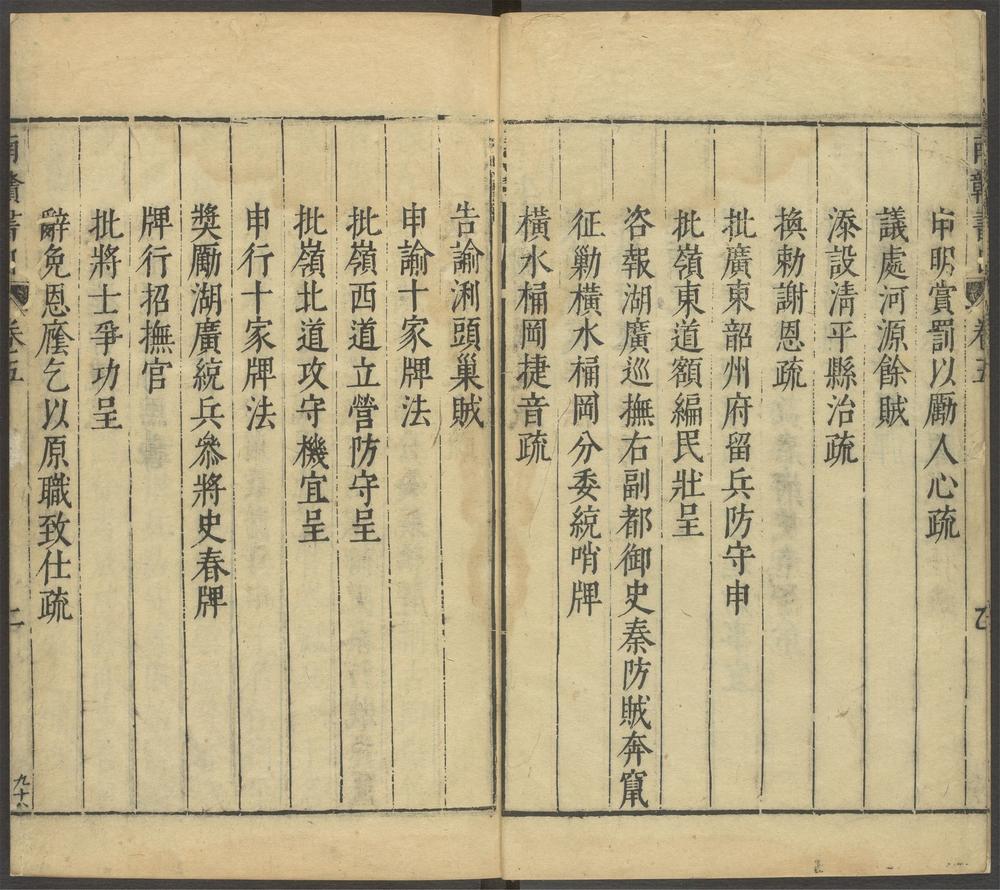 申明賞罰以勵人心疏
議處河源餘賊
添設清平縣治疏
換勅謝恩疏
批廣東韶州府留兵防守申
批嶺東道額編民壯呈
咨報湖廣巡撫右副都御史秦防賊奔竄
征勦橫水桶岡分委統哨牌
橫水桶岡捷音疏
告諭浰頭巢賊
申諭十家牌法
批嶺西道立營防守呈
批嶺北道攻守機宜呈
申行十家牌法
獎勵湖廣統兵叅將史春牌
牌行招撫官
批將士爭功呈
辭免恩廕乞以原職致仕疏
卷五
二
九十八